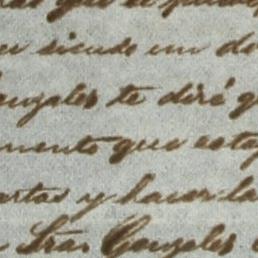 que el
siendo un do
Gonzales te diré q
mente que esta
artas y hacer la
Sras Gonzales